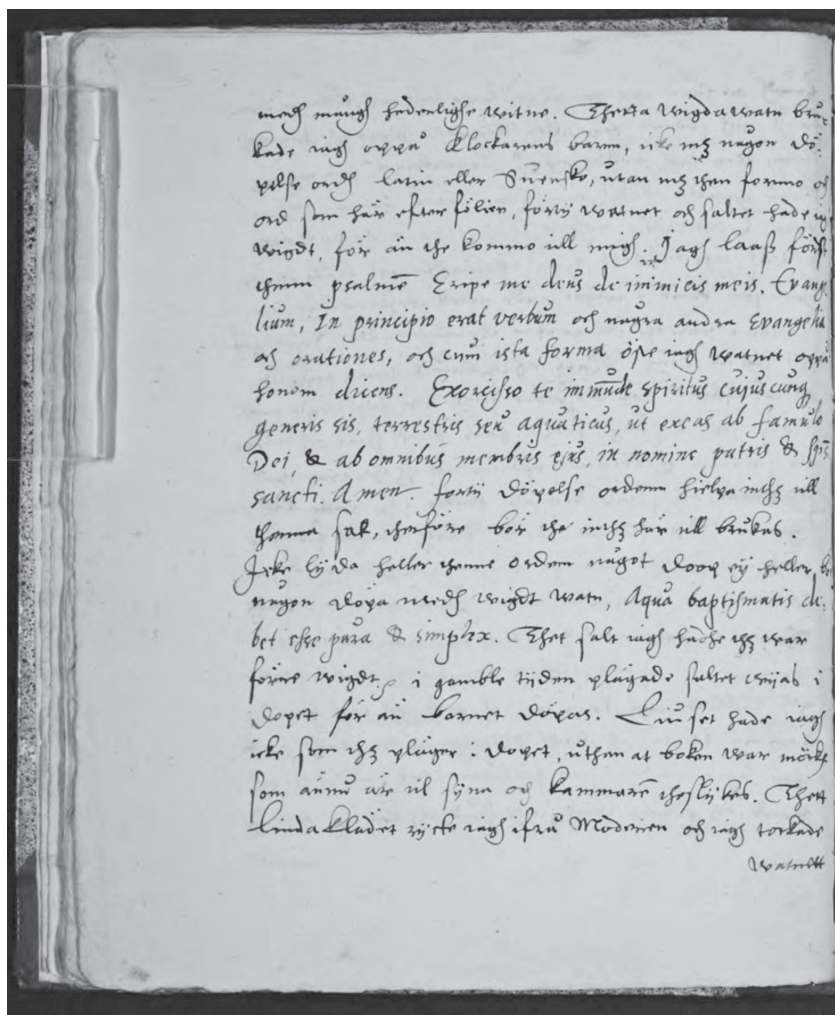 medh mungh hederlighe witne. Thetta wigda watn bru-
kade iagh oppå klockarens barnn, icke mz någon dö-
pelse ordh latin eller Suensko, utan mz then formo och
ord som här efter fölier, förty watnet och saltet hade iag
wigdt, för än the kommo till migh. Jagh laaß först
thenn psalmē Eripe me deus de inimicis meis. Evange
lium, In principio erat verbum och några andra Evangelia
och orationes, och cum ista forma öste iagh watnet oppå
honom dicens. Exorciso te immūde spiritus cujuscunq
generis sis, terrestris seu aquaticus, ut exeas ab famulo
Dei, & ab omnibus membris ejus, in nomine patris & spūs
sancti. Amen. forty döpelse ordenn hielpa inthz till
thenna sak, therföre bör the inthz här till brukas.
Icke lyda heller thenne ordenn något doop ey heller bö
någon döpa medh wigdt watn, Aqua baptismatis de-
bet esse pura & simplex. Thet salt iagh hadhe thz war
förre wigdt, i gamble tijden plägade saltet wijas i
dopet för än barnet döpas. Liuset hade iagh
icke som thz pläger i dopet, uthan at boken war mörk
som ännu äre til syna och kammarē theslykes. Thett
linda klädet rycte iagh ifrå Moderen och iagh torkade
watnett